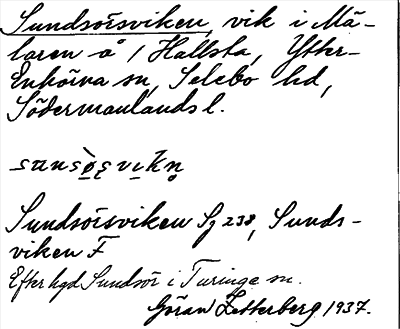 Sundsörsviken, vik i Mä-
laren å 1 Hallsta, Ytter-
Enhörna sn, Selebo hd,
Södermanlands l.
sɯnsø̀ṣvikn̥
Sundsörsviken Sj 238, Sunds-
viken F
Efter hgd Sundsör i Turinge sn.
Göran Zetterberg 1937.